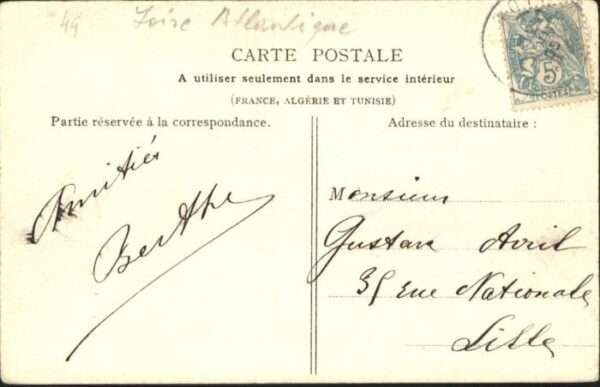 44 Loire Atlantique
CARTE POSTALE
A utiliser seulement dans le service intérieur
(FRANCE, ALGÉRIE ET TUNISIE)
Partie réservée à la correspondance.
Adresse du destinataire :
Amitiés
Berthe
Monsieur
Gustave Avril
35 rue Nationale
Lille
5